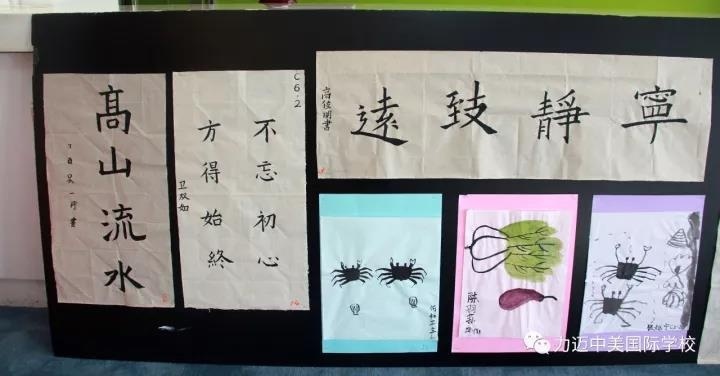 髙山流水
丁酉吴一
書
C6.2
不忘初心
方得始終
卫双如
寧靜致遠
高俊明書
力迈中美国际学校